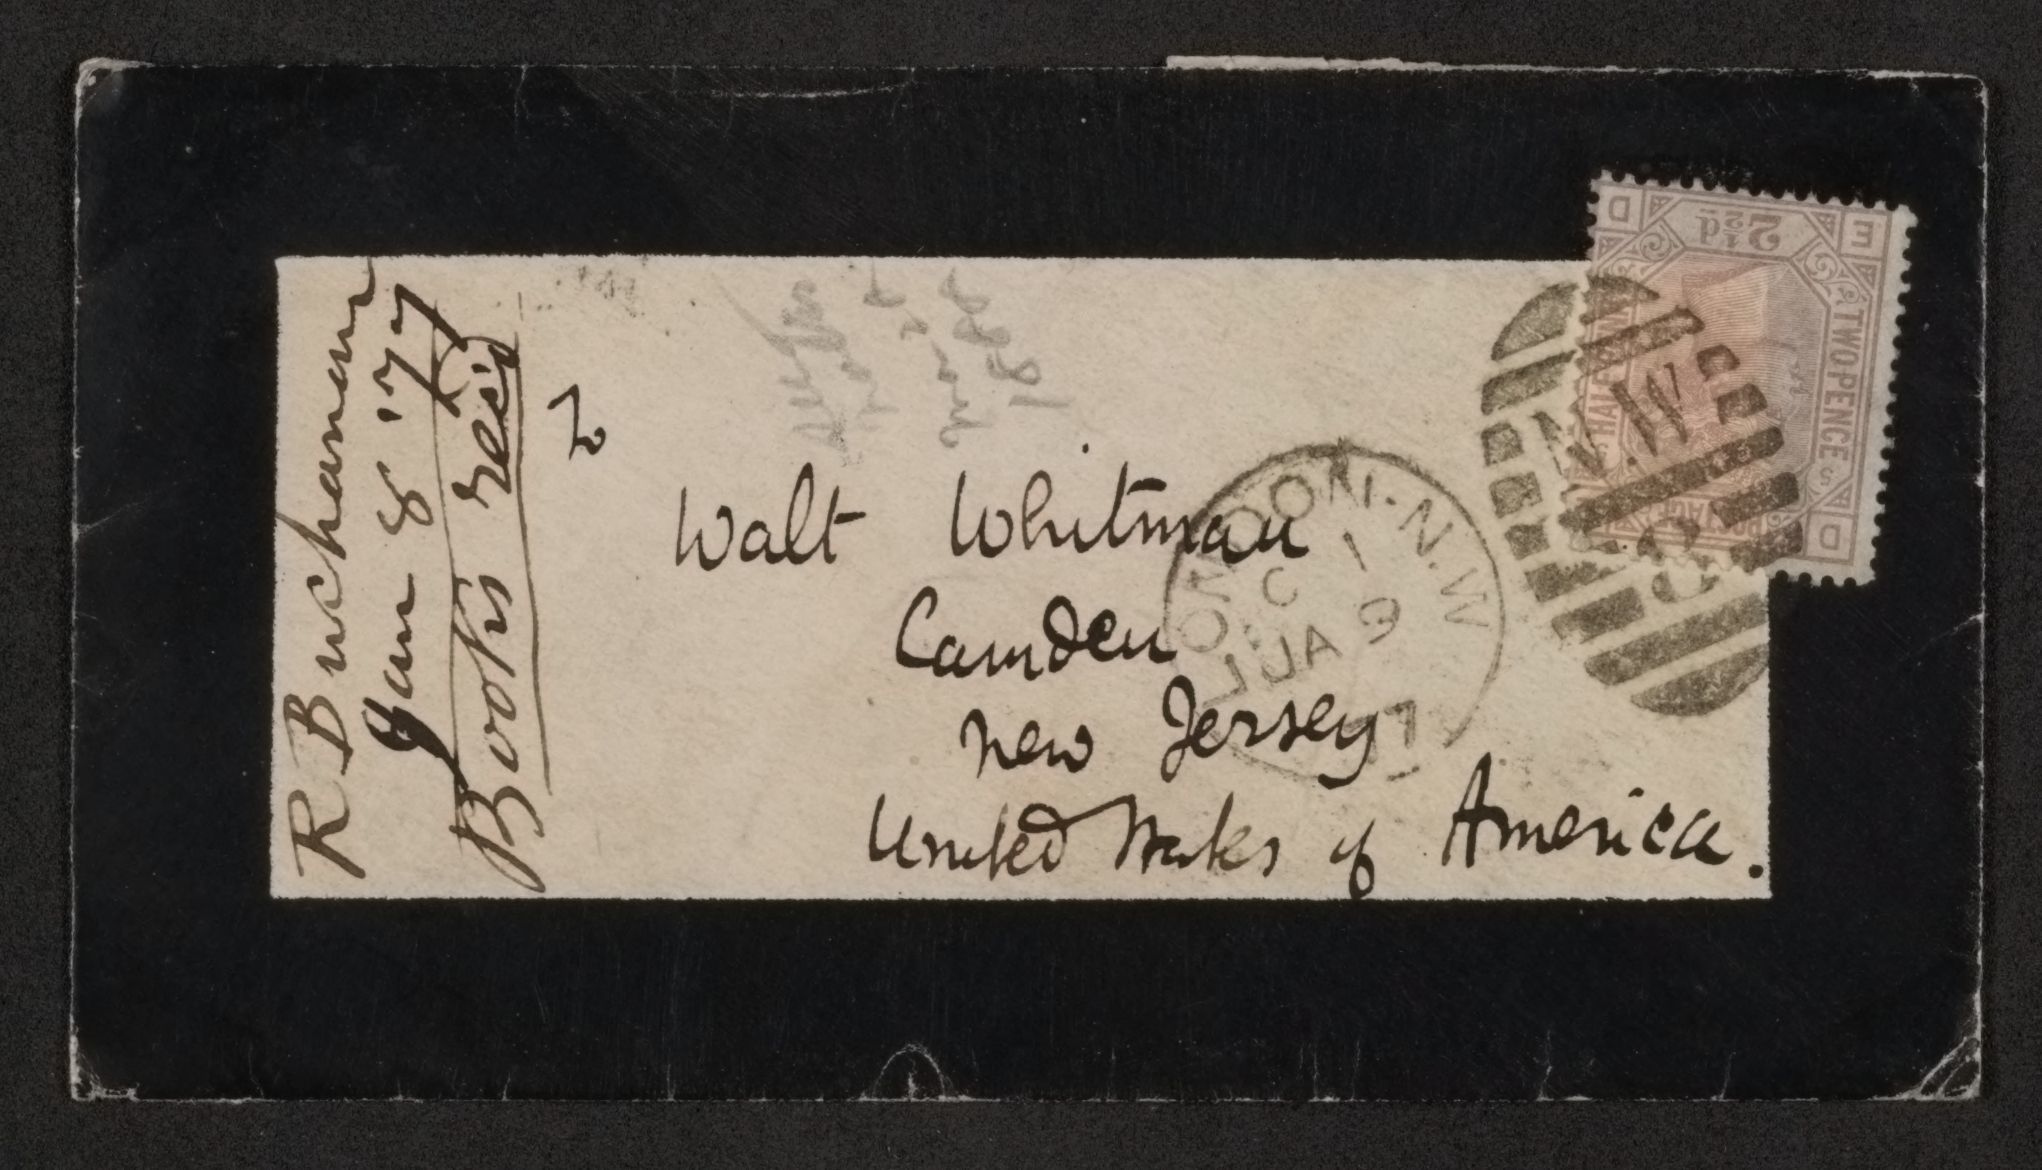 R Buchanan
Jan 8 '77
Books rec'd
Walt Whitman
Camden
New Jersey
United States of America.
see notes
Nov 25
1888
LONDON·N.W
C 1
JA 9
77
N.W
8
2½d
TWO PENCE
HALF PENNY
POSTAGE
D E
D